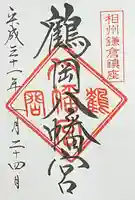 相州鎌倉鎮座
鶴岡八幡宮
平成三十一年 月二十四日
鶴
岡